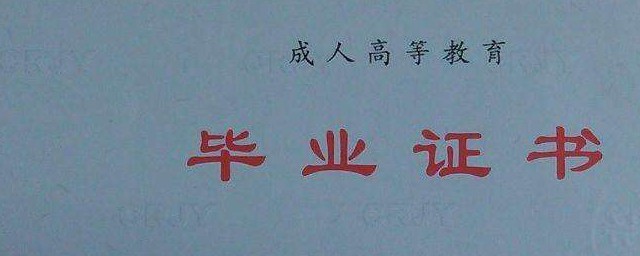 成人高等教育
毕业证书